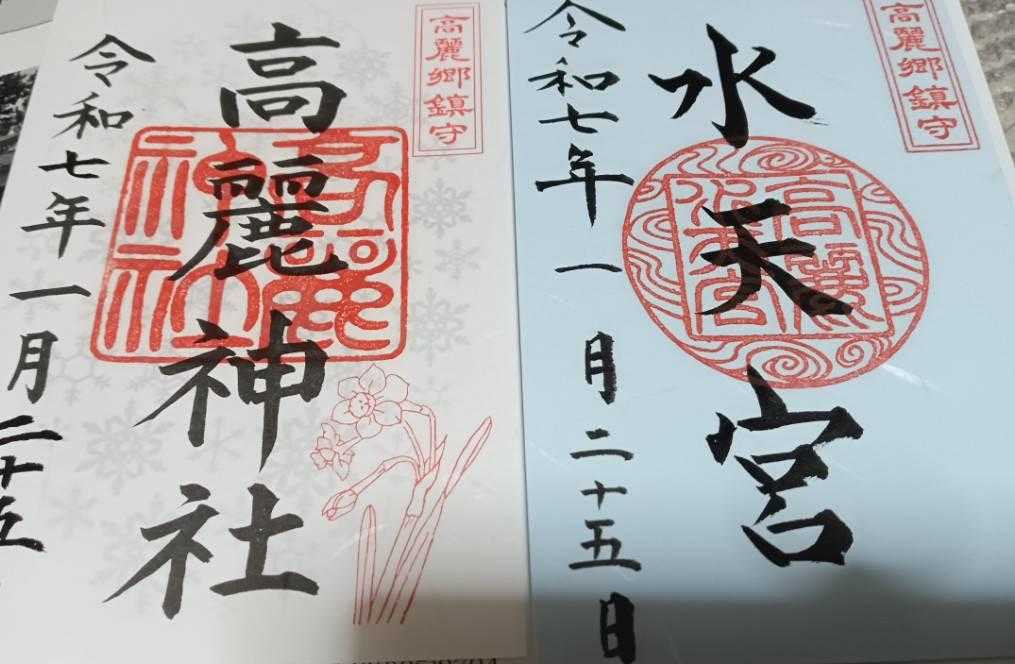 高麗郷鎮守
高麗神社
令和七年一月二十五
高麗郷鎮守
水天宮
令和七年一月二十五日
高麗神社
高麗水天宮